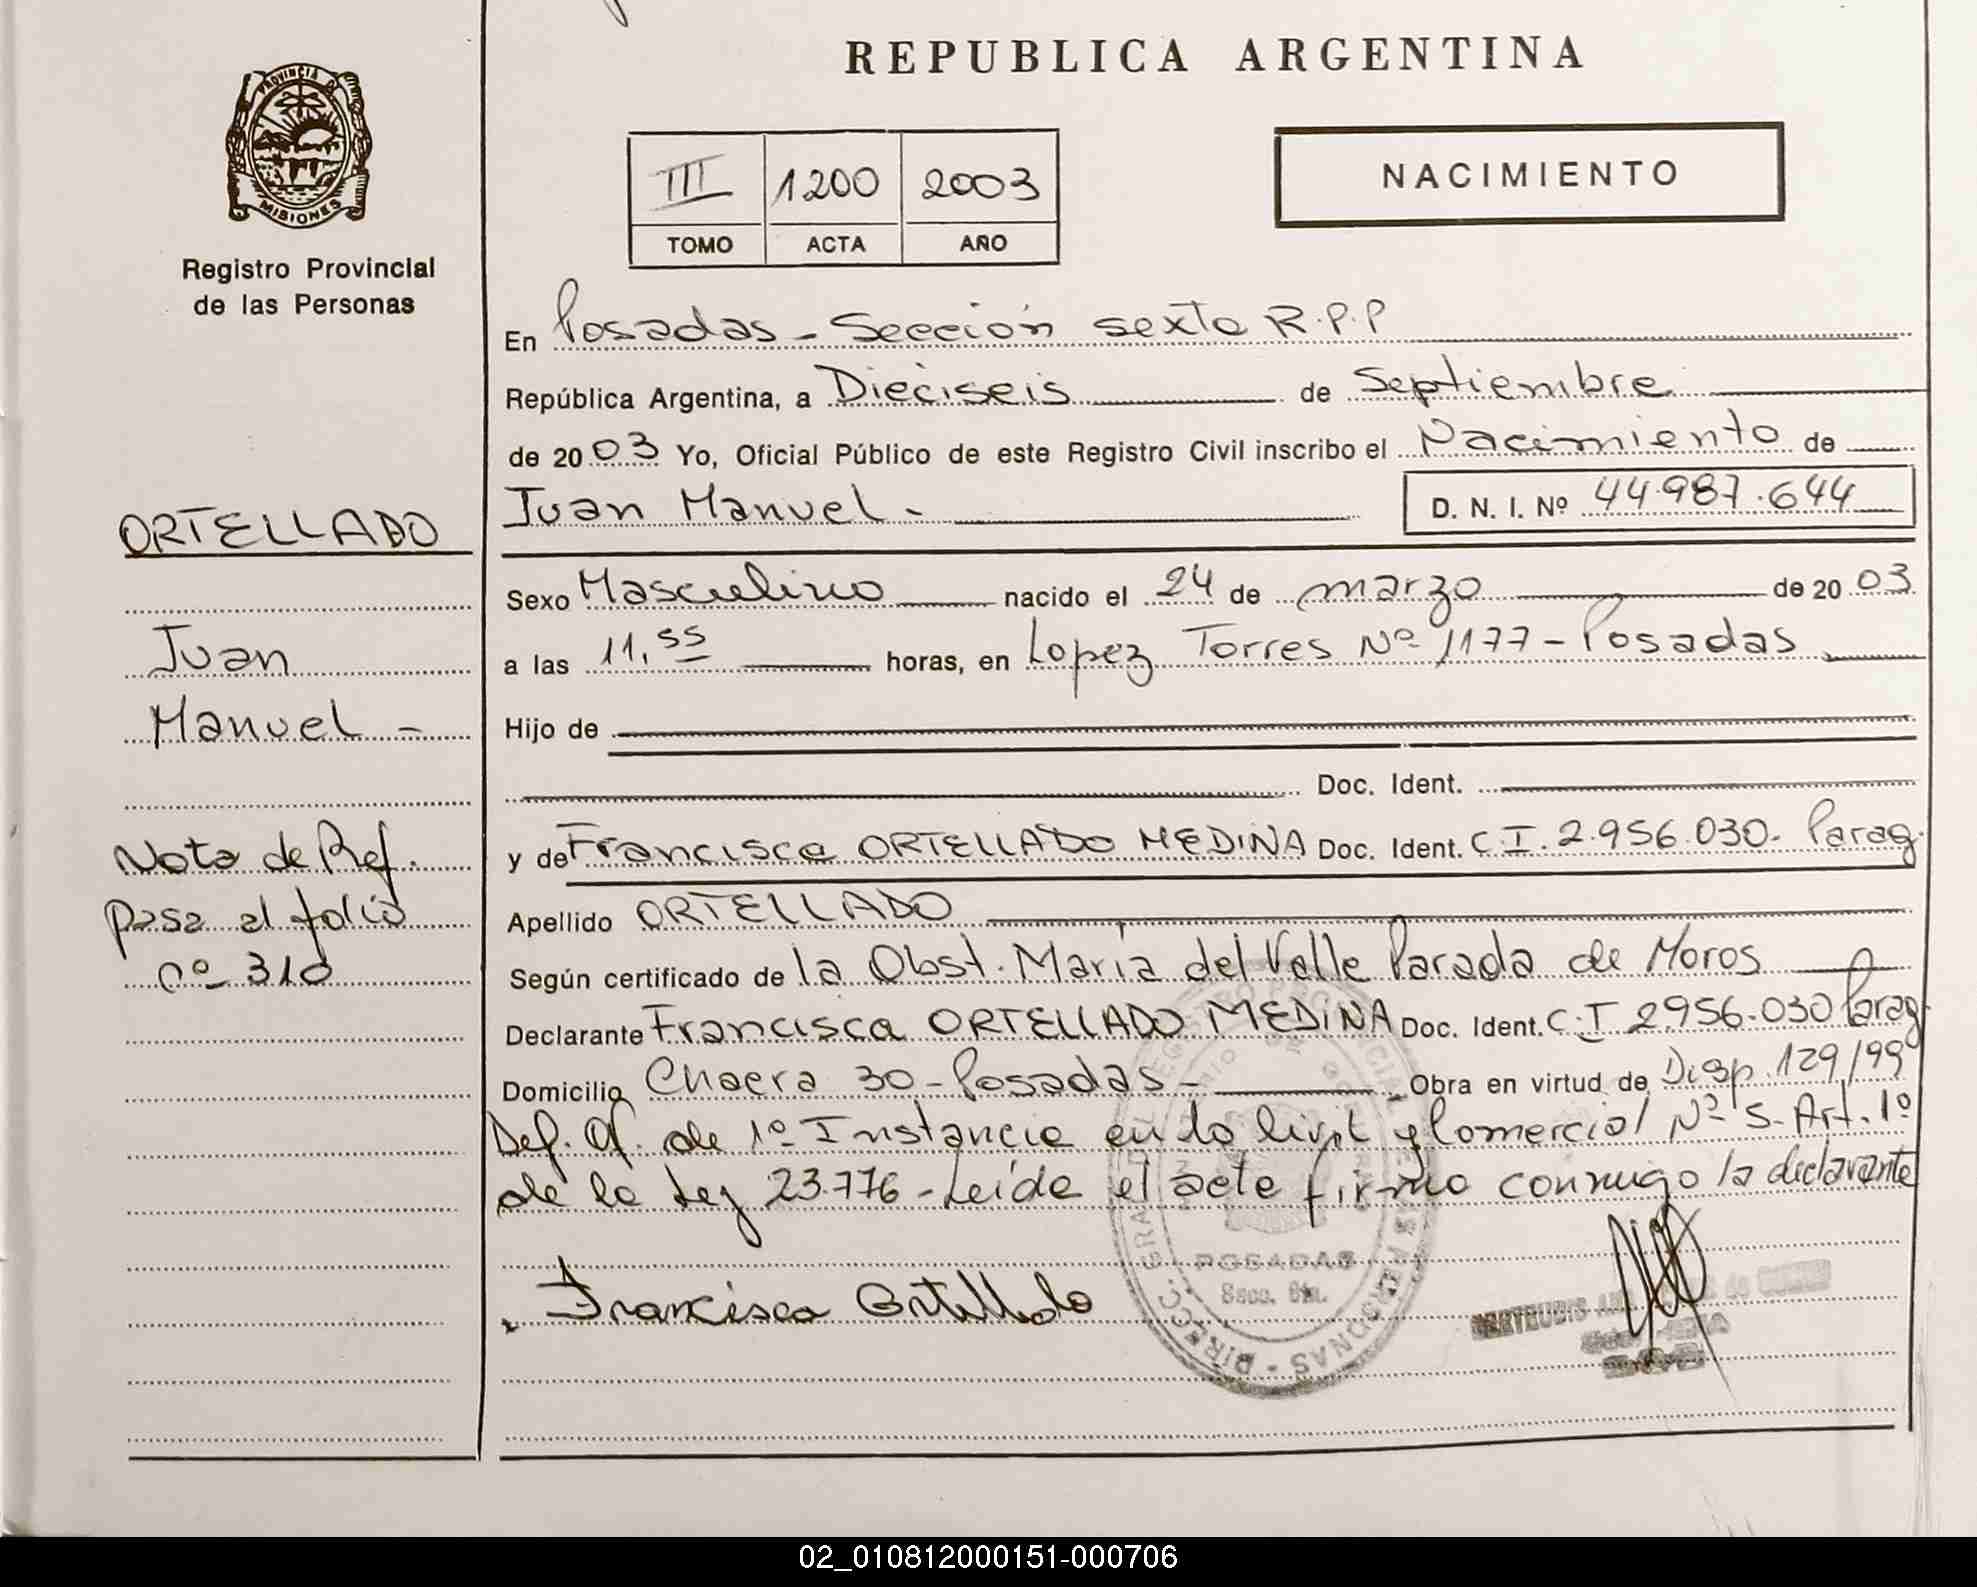 REPUBLICA ARGENTINA
PROVINCIA DE
MISIONES
Registro Provincial
de las Personas
III 1200 2003
TOMO ACTA AÑO
NACIMIENTO
En Posadas - Sección sexta R.P.P
República Argentina, a Dieciseis de Septiembre
de 2003 Yo, Oficial Público de este Registro Civil inscribo el Nacimiento de
Juan Manuel -
D. N. I. Nº 44.987.644
ORTELLADO
Juan
Manuel -
Nota de Ref.
pasa al folio
nº 310
Sexo Masculino nacido el 24 de marzo de 2003
a las 11,55 horas, en Lopez Torres Nº 1177 - Posadas
Hijo de
Doc. Ident.
y de Francisca ORTELLADO MEDINA Doc. Ident. C I. 2.956.030. Parag.
Apellido ORTELLADO
Según certificado de la Obst. María del Valle Parada de Moros
Declarante Francisca ORTELLADO MEDINA Doc. Ident. C.I 2.956.030 Parag
Domicilio Chacra 30 - Posadas - Obra en virtud de Disp. 129/99
Def. Of. de 1º Instancia en lo Civil y Comercial Nº 5 - Art. 1º
de la Ley 23.776 - Leída el acta firma conmigo la declarante
Francisca Ortellado
POSADAS
Secc. 6ta.
GERTRUDIS
02_010812000151-000706